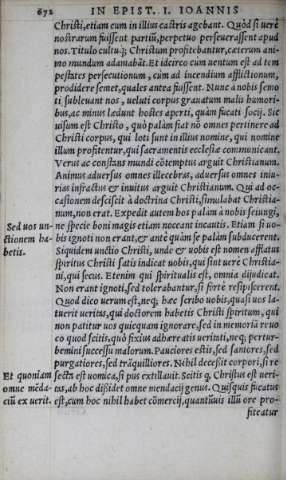 672 IN EPIST. I. IOANNIS
Christi, etiam cum in illius castris agebant. Quòd si uerè
nostrarum fuissent partiũ, perpetuo perseuerassent apud
nos. Titulo cultuq́; Christum profitebantur, cæterum ani-
mo mundum adamabãt. Et idcirco cùm uentum est ad tem
pestates persecutionum, cùm ad incendiam afflictionum,
prodidere semet, quales antea fuissent. Nunc à nobis semo
ti subleuant nos, ueluti corpus grauatum malis humori-
bus, ac minus lædunt hostes aperti, quàm fucati socij. Sic
uisum est Christo, quò palàm fiat nõ omnes pertinere ad
Christi corpus, qui loti sunt in illius nomine, qui nomine
illum profitentur, qui sacramentis ecclesiæ communicant.
Verus ac constans mundi cõtemptus arguit Christianum.
Animus aduersus omnes illecebras, aduersus omnes iniu-
rias infractus & inuitus arguit Christianum. Qui ad oc-
casionem desciscit à doctrina Christi, simulabat Christia-
num, non erat. Expedit autem hos palàm à nobis seiungi,
ne specie boni magis etiam noceant incautis. Etiam si uo-
bis ignoti non erant, & ante quàm se palàm subducerent.
Siquidem unctio Christi, unde & uobis est nomen afflatus
spiritus Christi satis indicat uobis, qui sint uerè Christia-
ni, qui secus. Etenim qui spiritualis est, omnia dijudicat.
Non erant ignoti, sed tolerabantur, si fortè resipiscerent.
Quod dico uerum est, neq; hæc scribo uobis, quasi uos la-
tuerit ueritas, qui doctorem habetis Christi spiritum, qui
non patitur uos quicquam ignorare, sed in memoriã reuo
co quod scitis, quò fixius adhæreatis ueritati, neq; pertur-
bemini successu malorum. Pauciores estis, sed sanctores, sed
purgatiores, sed trãquilliores. Nihil decessit corpori, si re
secta est uomica, si pus extillauit. Scitis q, Christus est ueri-
tas, ab hoc dissidet omne mendacij genus. Quisquis fucatus
est, cum hoc nihil habet cõmercij, quantũuis illũ ore pro-
fiteatur
Sed uos un-
ctionem ha-
betis.
Et quoniam
omne mẽda-
ciũ ex uerit.